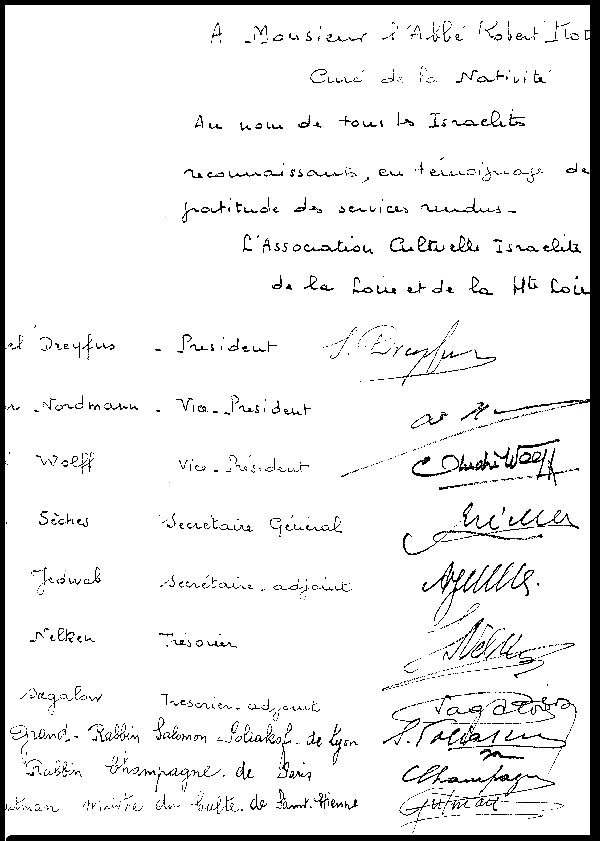 A Monsieur l'Abbé Robert
Curé de la Nativité
Au nom de tous les Israelites
reconnaissants, en témoignage de
gratitude des services rendus -
L'Association Cultuelle Israelite
de la Loire et de la Hte Loire
Dreyfus - President S. Dreyfus
Nordmann - Vice-President
Wolff Vice-President André Wolff
Sèches Secretaire Général
Jedwab Secrétaire-adjoint
Nelken Trésorier Nelken
Sagalow Tresorier-adjoint Sagalow
Grand-Rabbin Salomon Poliakof de Lyon S. Poliakof
Rabbin Champagne de Paris Champagne
Gutman ministre du Culte de Saint-Etienne Gutman